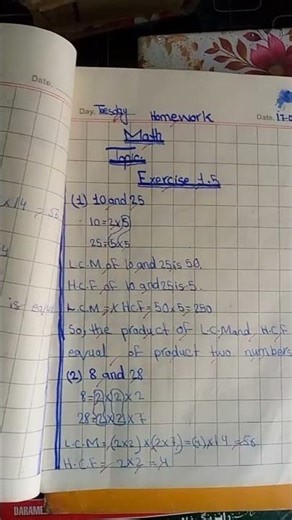 Date.
Day. Tuesday Homework Date. 17-0
Math
Topic
Exercise 1.5
(1) 10 and 25
10=2x5
25=5x5
L.C.M of 10 and 25 is 50.
H.C.F of 10 and 25 is 5.
L.C.M = x HCF = 50x5=250
So, the product of L.C.M and H.C.F
eaqual of product two numbers
is
(2) 8 and 28
8=2x2x2
28=2x2x7
L.C.M=(2x2)x(2x7)=(4)x14=56
H.C.F= 2x2=4
DARAME